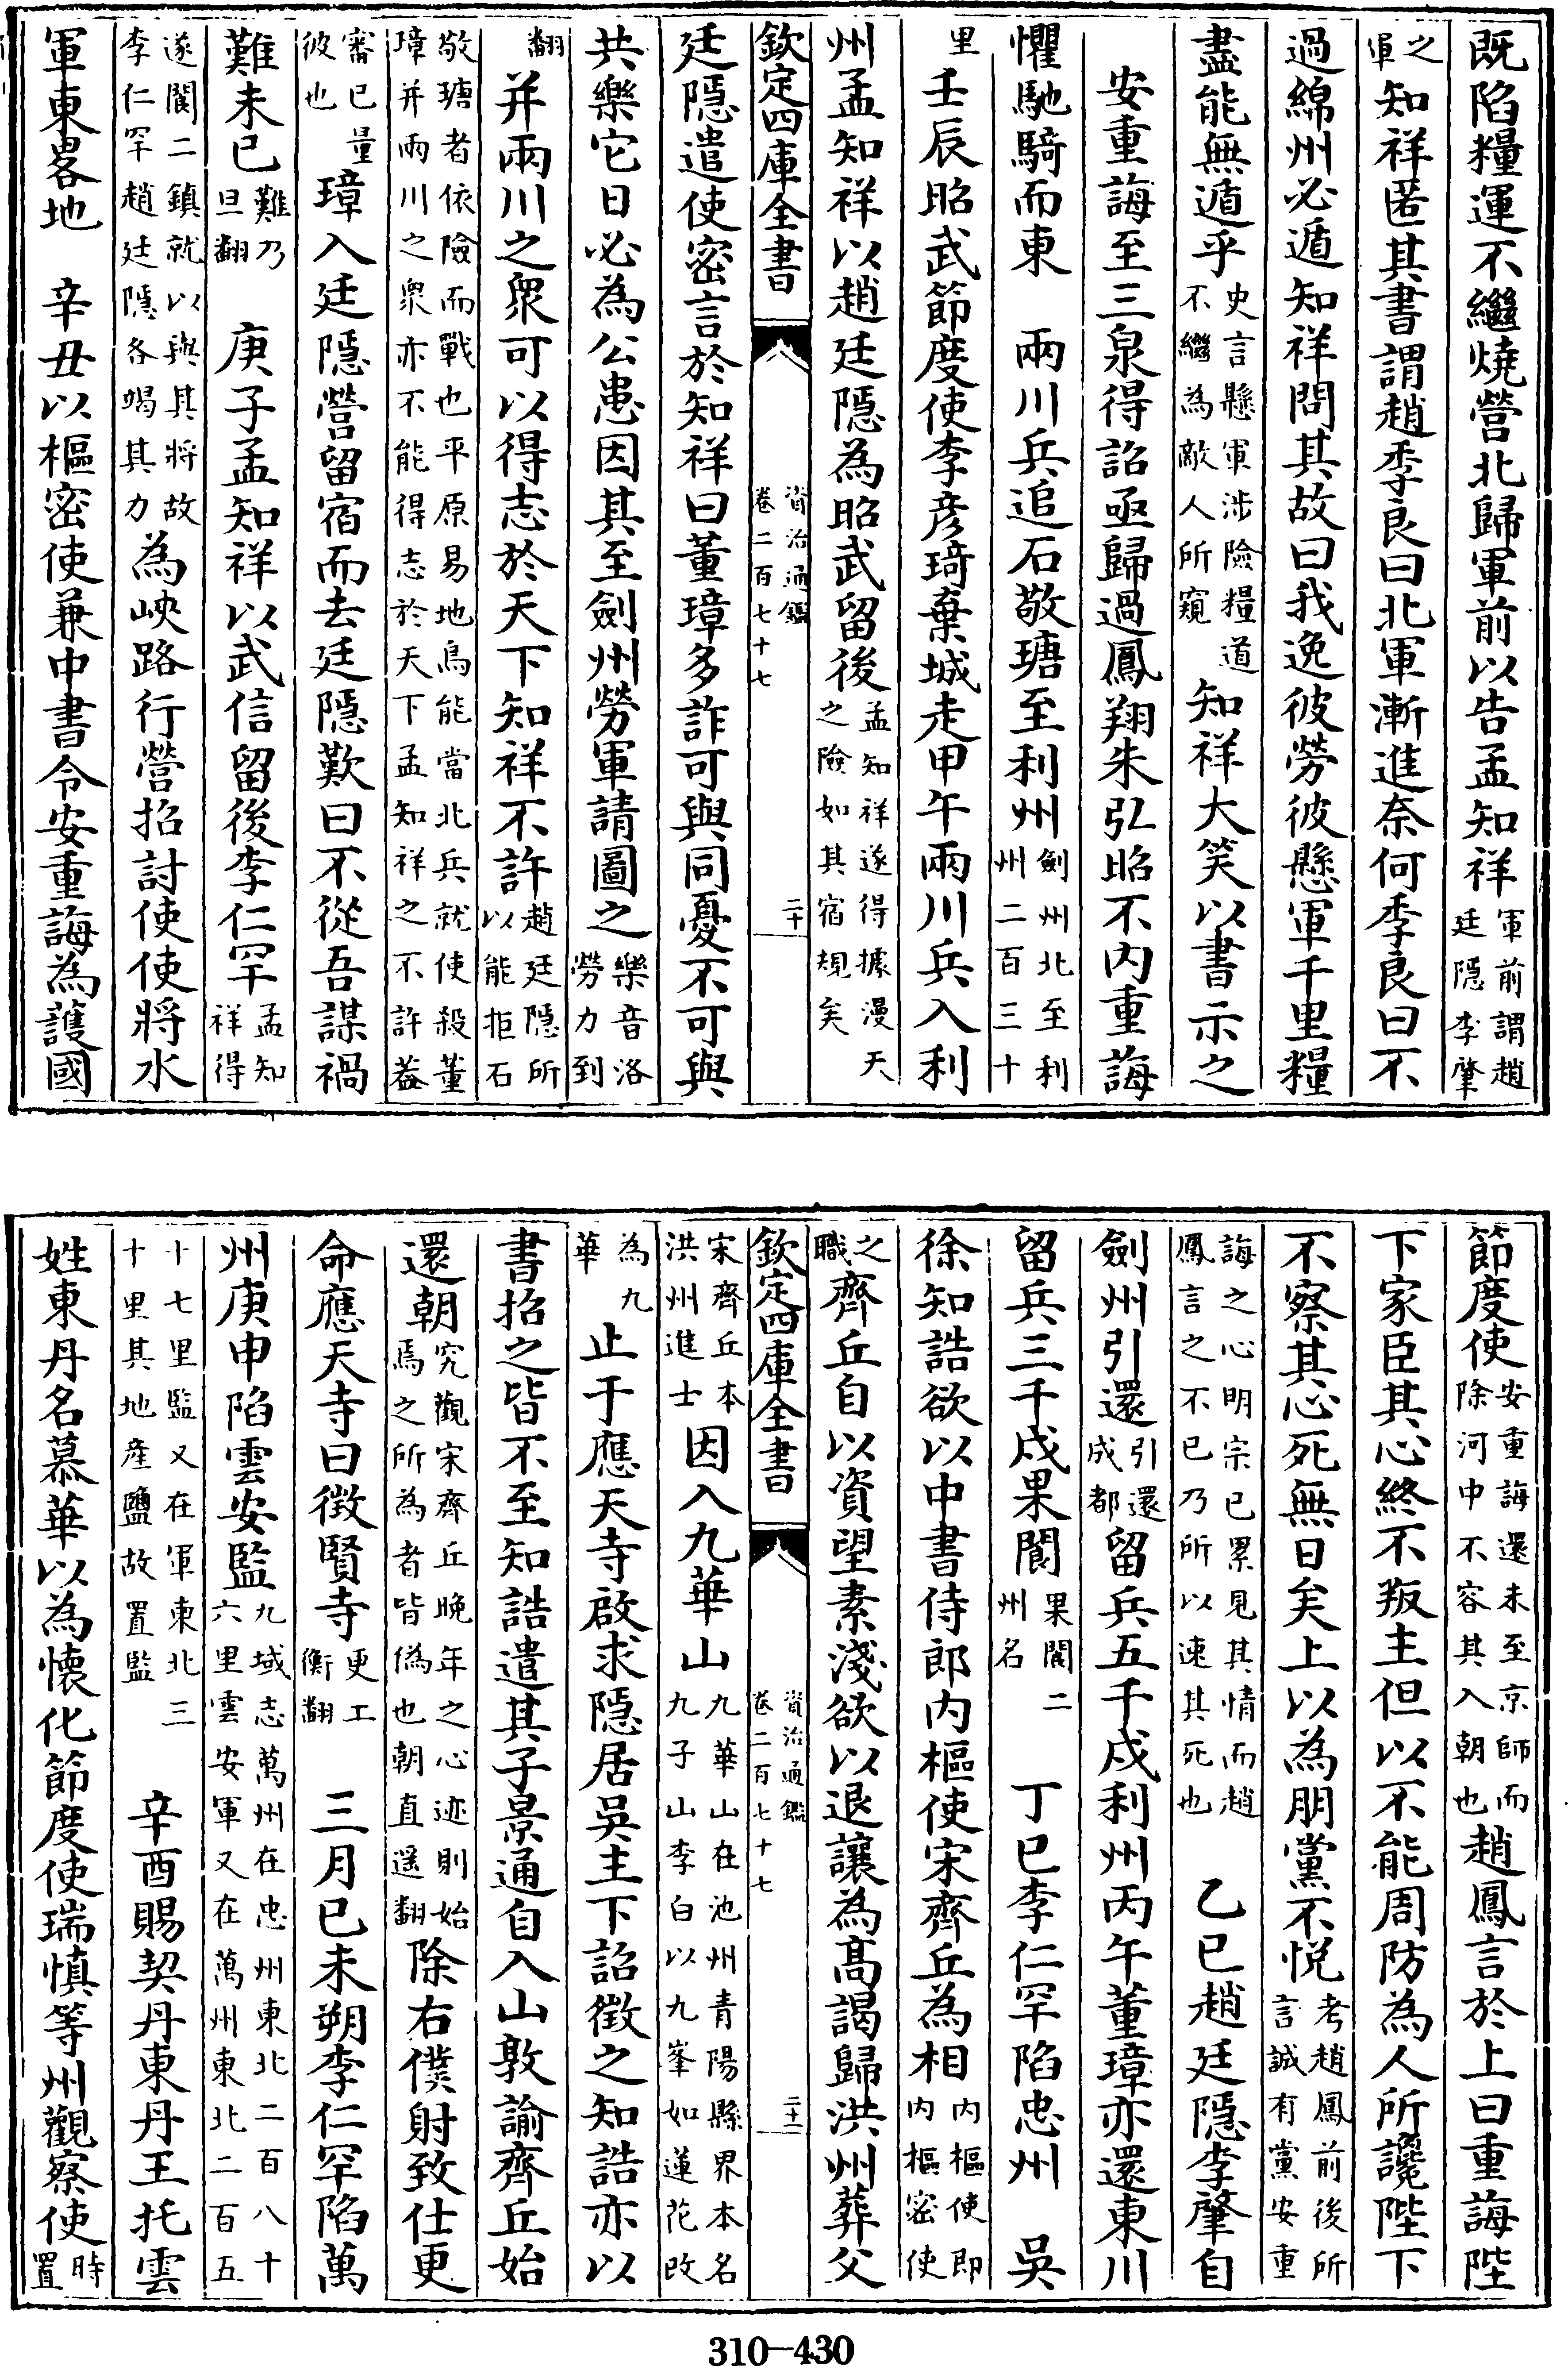 既陷糧運不繼燒營北歸軍前以告孟知祥軍前謂趙廷隱李肇
之軍知祥匿其書謂趙季良曰北軍漸進奈何季良曰不
過綿州必遁知祥問其故曰我逸彼勞彼懸軍千里糧
盡能無遁乎史言懸軍涉險糧道不繼為敵人所窺知祥大笑以書示之
安重誨至三泉得詔亟歸過鳳翔朱弘昭不内重誨
懼馳騎而東　兩川兵追石敬瑭至利州劍州北至利州二百三十
里壬辰昭武節度使李彦琦棄城走甲午兩川兵入利
州孟知祥以趙廷隱為昭武留後孟知祥遂得據漫天之險如其宿規矣
欽定四庫全書　資治通鑑卷二百七十七　二十
廷隱遣使密言於知祥曰董璋多詐可與同憂不可與
共樂它日必為公患因其至劍州勞軍請圖之樂音洛勞力到
翻并兩川之衆可以得志於天下知祥不許趙廷隱所以能拒石
敬瑭者依險而戰也平原易地烏能當北兵就使殺董璋并兩川之衆亦不能得志於天下孟知祥之不許葢
審已量彼也璋入廷隱營留宿而去廷隱歎曰不從吾謀禍
難未已難乃旦翻　庚子孟知祥以武信留後李仁罕孟知祥得
遂閬二鎮就以與其將故李仁罕趙廷隱各竭其力為峽路行營招討使使將水
軍東畧地　辛丑以樞密使兼中書令安重誨為護國
節度使安重誨還未至京師而除河中不容其入朝也趙鳳言於上曰重誨陛
下家臣其心終不叛主但以不能周防為人所讒陛下
不察其心死無日矣上以為朋黨不悦考趙鳳前後所言誠有黨安重
誨之心明宗已累見其情而趙鳳言之不已乃所以速其死也　乙巳趙廷隱李肇自
劍州引還引還成都留兵五千戍利州丙午董璋亦還東川
留兵三千戍果閬果閬二州名　丁巳李仁罕陷忠州　吳
徐知誥欲以中書侍郎内樞使宋齊丘為相内樞使即内樞密使
之職齊丘自以資望素淺欲以退讓為高謁歸洪州葬父
欽定四庫全書　資治通鑑卷二百七十七　二十一
宋齊丘本洪州進士因入九華山九華山在池州青陽縣界本名九子山李白以九峯如蓮花改
為九華止于應天寺啟求隱居吳主下詔徵之知誥亦以
書招之皆不至知誥遣其子景通自入山敦諭齊丘始
還朝究觀宋齊丘晚年之心迹則始焉之所為者皆偽也朝直遥翻除右僕射致仕更
命應天寺曰徵賢寺更工衡翻　三月己未朔李仁罕陷萬
州庚申陷雲安監九域志萬州在忠州東北二百八十六里雲安軍又在萬州東北二百五
十七里監又在軍東北三十里其地產鹽故置監　辛酉賜契丹東丹王托雲
姓東丹名慕華以為懷化節度使瑞慎等州觀察使時置
310—430